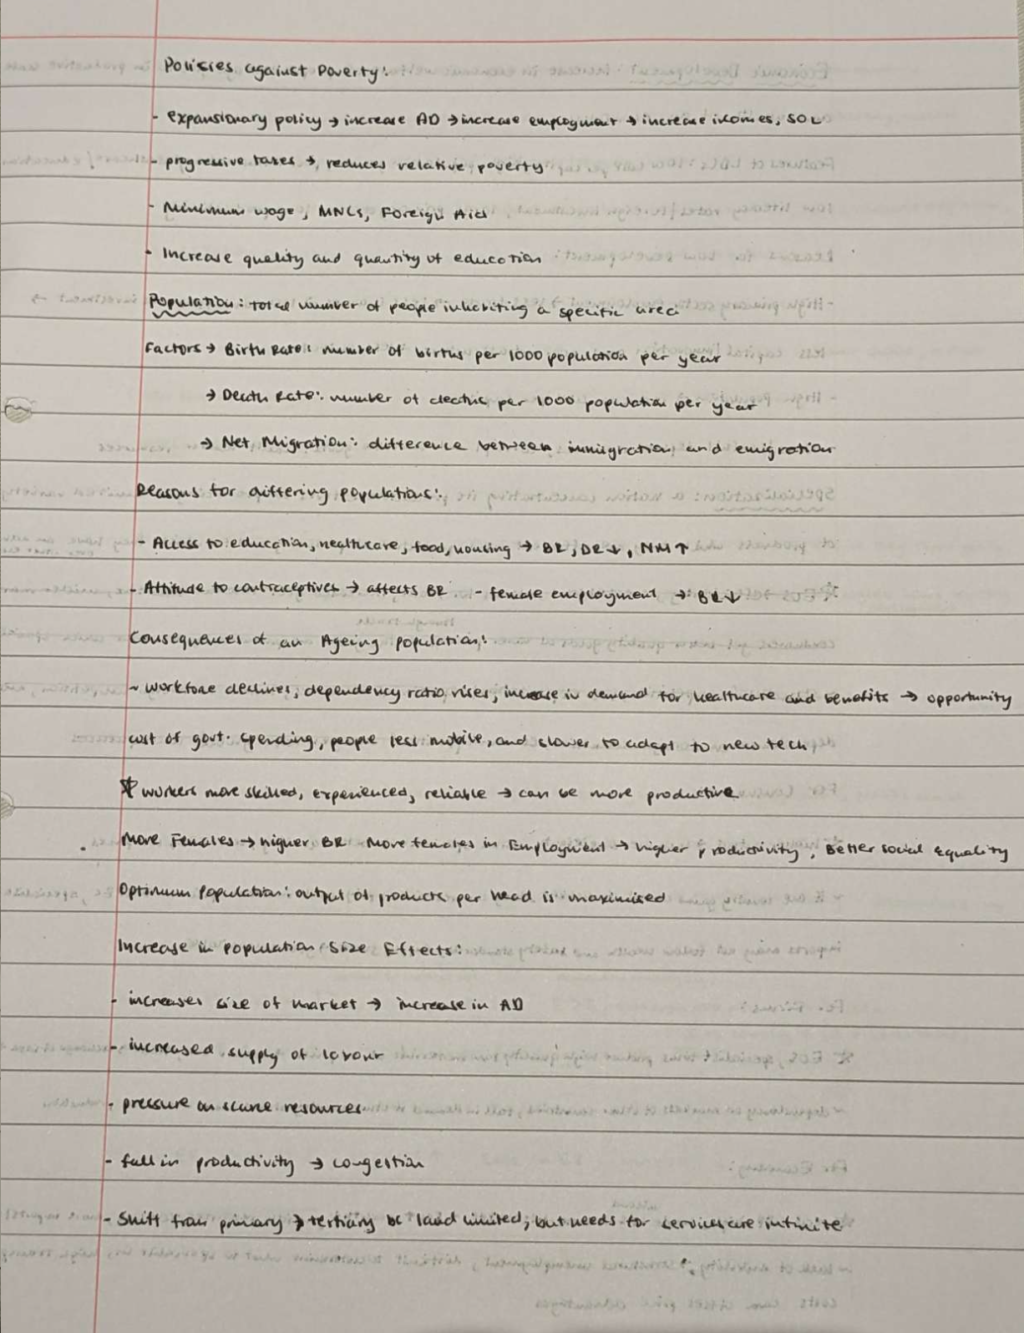 Policies against Poverty:
- expansionary policy → increase AD → increase employment → increase incomes, SOL
- progressive taxes → reduces relative poverty
- Minimum wage, MNCs, Foreign Aid
- Increase quality and quantity of education
Population: total number of people inhabiting a specific area
Factors → Birth Rate: number of births per 1000 population per year
→ Death Rate: number of deaths per 1000 population per year
→ Net Migration: difference between immigration and emigration
Reasons for differing populations:
- Access to education, healthcare, food, housing → BR, DR↓, NM↑
- Attitude to contraceptives → affects BR - female employment → BR↓
Consequences of an Ageing population:
~ workforce declines, dependency ratio rises, increase in demand for healthcare and benefits → opportunity
cost of govt. spending, people less mobile, and slower to adapt to new tech
* workers more skilled, experienced, reliable → can be more productive
More Females → higher BR More females in Employment → higher productivity, Better social equality
Optimum Population: output of products per head is maximised
Increase in population size Effects:
- increases size of market → increase in AD
- increased supply of labour
- pressure on scarce resources
- fall in productivity → congestion
- Shift from primary → tertiary bc land limited, but needs for services are infinite